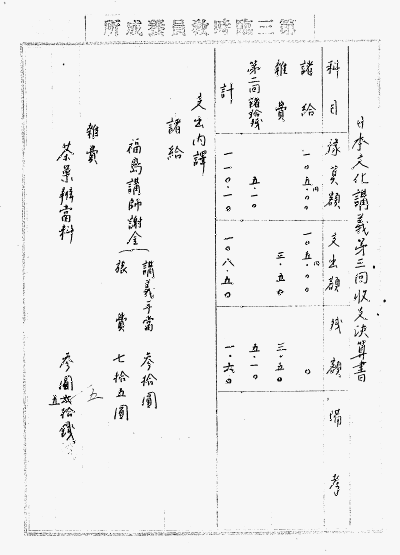 第三臨時教員養成所
日本文化講義第三回收支決算書
科目 豫算額 支出額 残額 備考
諸給 一〇五.〇〇 一〇五.〇〇 〇
雜費 三.五〇 三.五〇
第二回繰越残 五.一〇 五.一〇
計 一一〇.一〇 一〇八.五〇 一.六〇
支出内譯
諸給
福島講師謝金 講義手當 参拾圓
旅費 七拾五圓
雜費 五
茶菓辨當料 参圓五拾錢